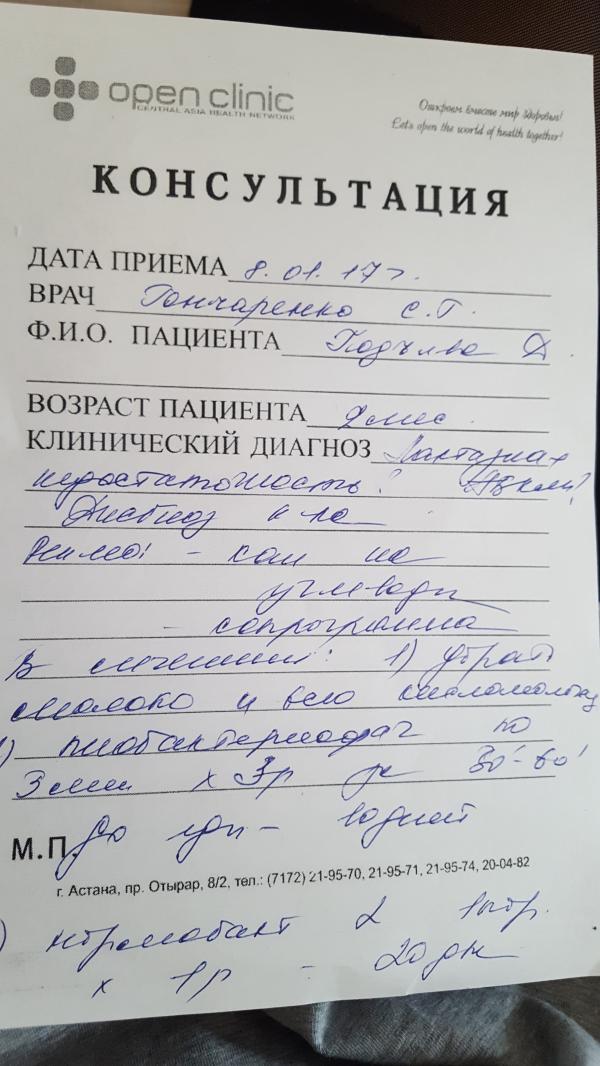 open clinic
CENTRAL ASIA HEALTH NETWORK
Откроем вместе мир здоровья!
Let's open the world of health together!
КОНСУЛЬТАЦИЯ
ДАТА ПРИЕМА 8.01.17г.
ВРАЧ Гончаренко С.Г.
Ф.И.О. ПАЦИЕНТА
ВОЗРАСТ ПАЦИЕНТА мес.
КЛИНИЧЕСКИЙ ДИАГНОЗ Лактазная
недостаточность?
Дисбиоз к-ка
- кал на
углеводы
- копрограмма
В лечении: 1) убрать
молоко и всю кисломолочку
) пиобактериофаг по
3 мл х 3р за 30'-60'
М.П. до еды -
г. Астана, пр. Отырар, 8/2, тел.: (7172) 21-95-70, 21-95-71, 21-95-74, 20-04-82
) нормобакт
х 1р - 20 дн